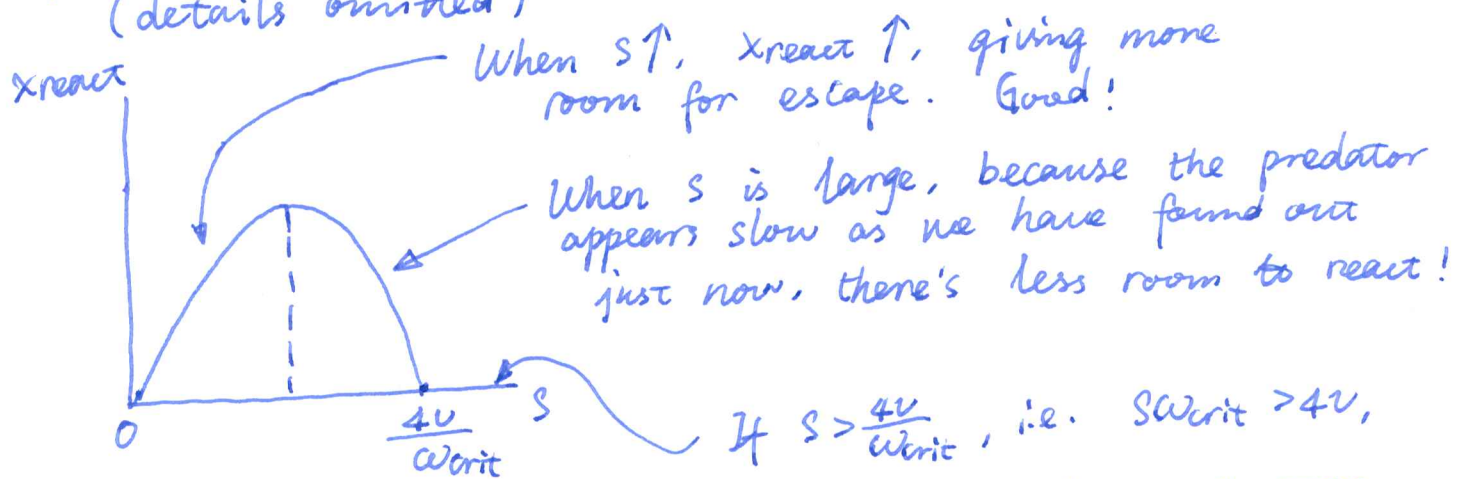 (details omitted)
xreact
When S↑, xreact ↑, giving more
room for escape. Good!
When S is large, because the predator
appears slow as we have found out
just now, there's less room to react!
0
4v/ωcrit
S
If S > 4v/ωcrit, i.e. Sωcrit > 4v,